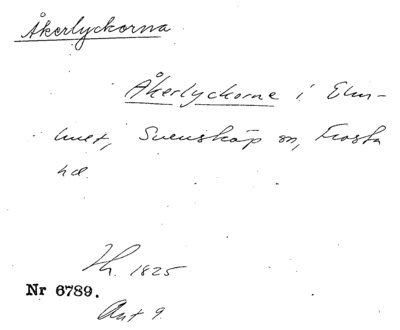 Åkerlyckorna
Åkerlyckorne i Elm-
huet, Svensköp sn, Frosta
hd.
Th. 1825
Nr 6789.
Akt 9.